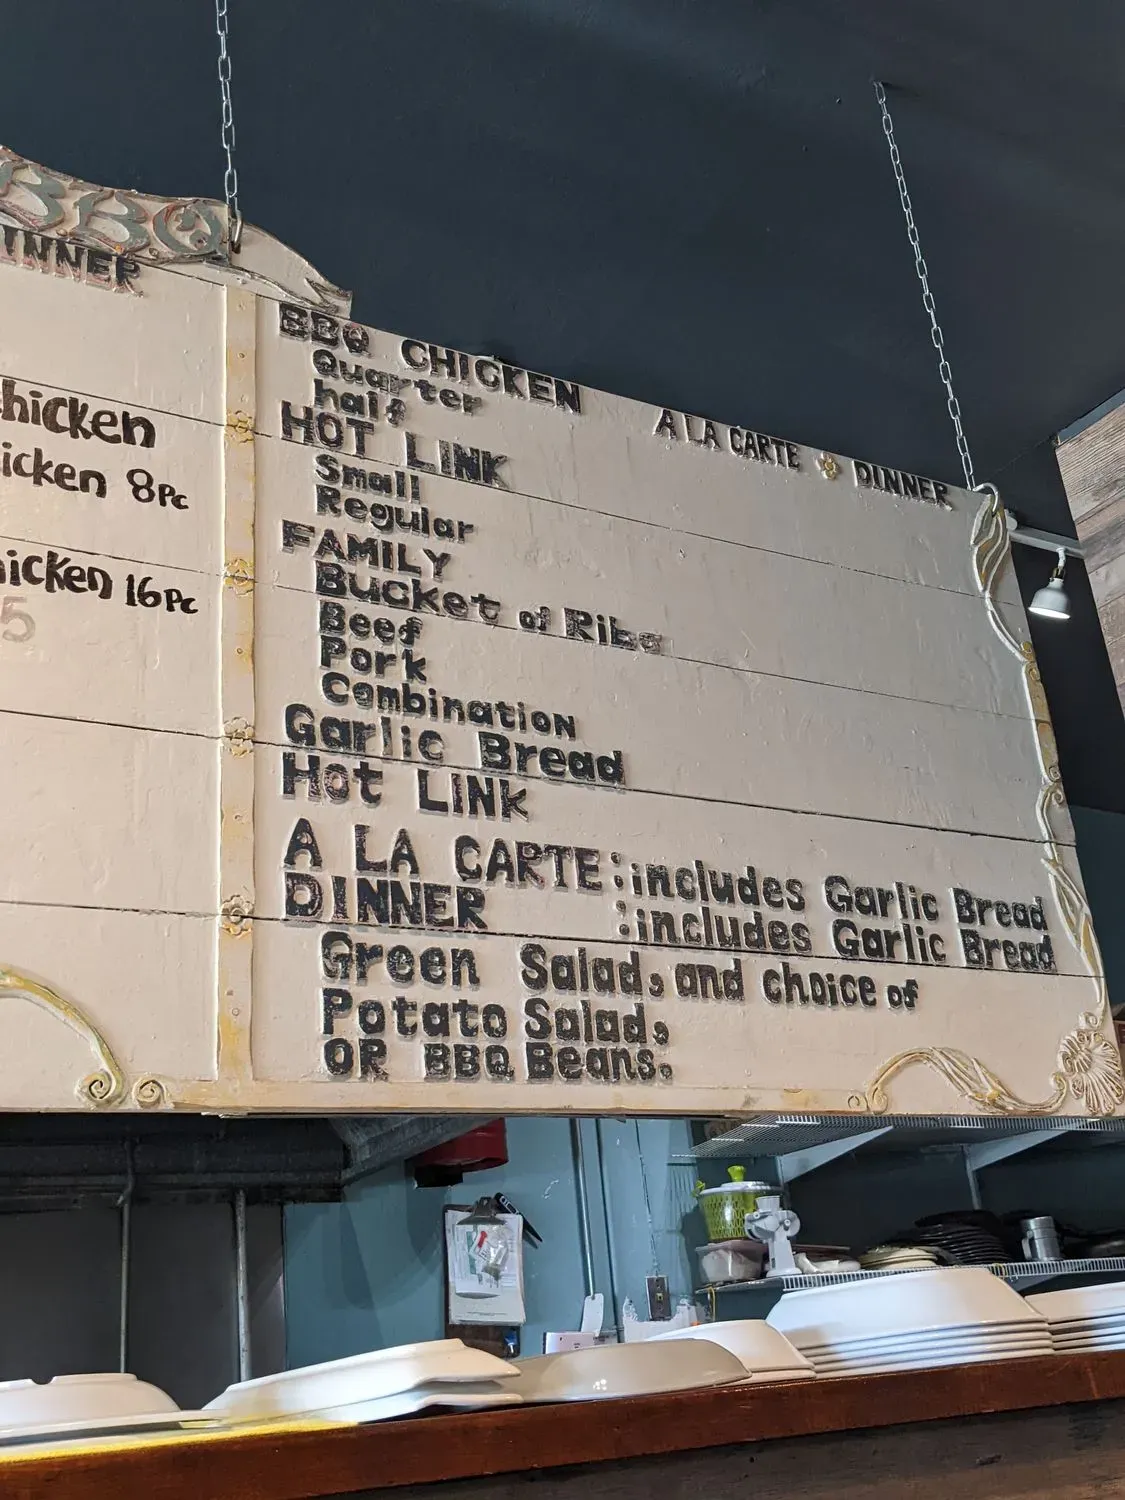 BBQ
INNER
hicken
icken 8Pc
icken 16Pc
5
BBQ CHICKEN
A LA CARTE DINNER
Quarter
half
HOT LINK
Small
Regular
FAMILY
Bucket of Ribs
Beef
Pork
Combination
Garlic Bread
Hot LINK
A LA CARTE :includes Garlic Bread
DINNER :includes Garlic Bread
Green Salad, and choice of
Potato Salad,
OR BBQ Beans.